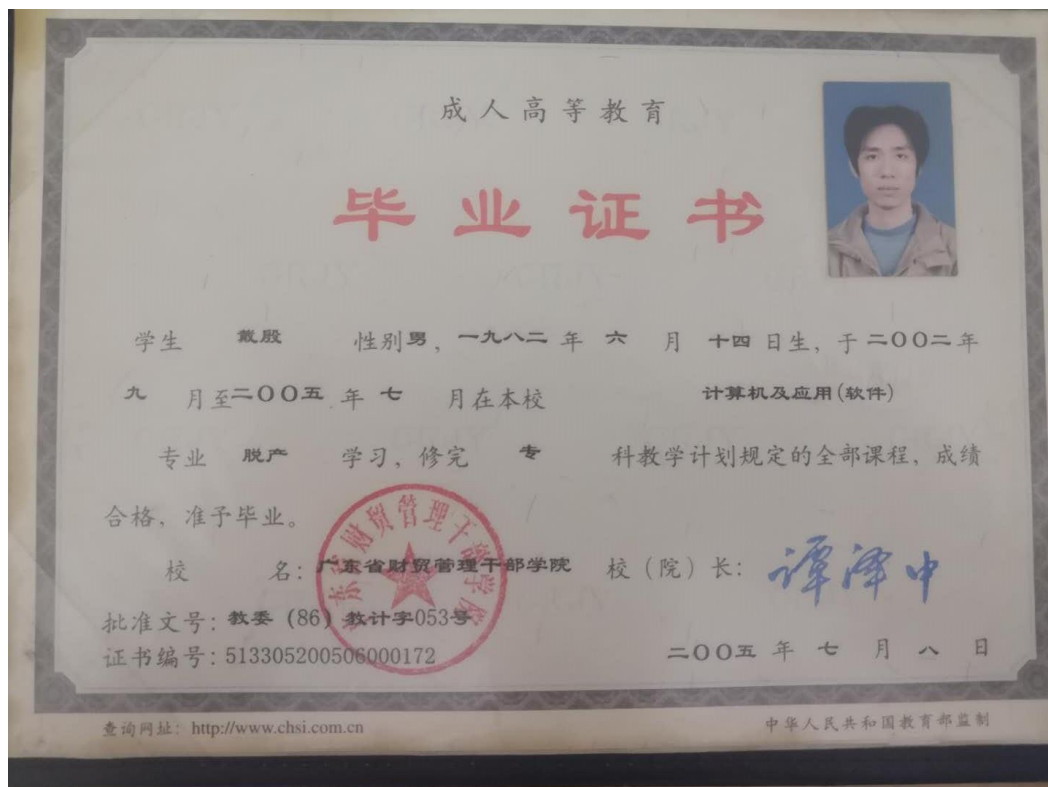 成人高等教育
毕业证书
学生 戴殷 性别男，一九八二 年 六 月 十四 日生，于 二〇〇二 年
九 月至二〇〇五 年 七 月在本校 计算机及应用(软件)
专业 脱产 学习，修完 专 科教学计划规定的全部课程，成绩
合格，准予毕业。
校 名：广东省财贸管理干部学院 校（院）长：谭泽中
广东省财贸管理干部学院
批准文号：教委（86）教计字053号
证书编号：513305200506000172
二〇〇五 年 七 月 八 日
查询网址：http://www.chsi.com.cn
中华人民共和国教育部监制